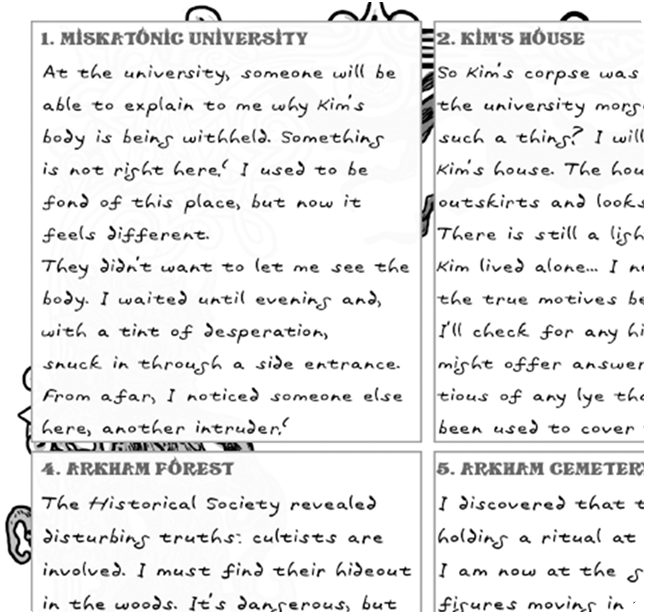 1. MISKATONIC UNIVERSITY
At the university, someone will be
able to explain to me why Kim's
body is being withheld. Something
is not right here! I used to be
fond of this place, but now it
feels different.
They didn't want to let me see the
body. I waited until evening and,
with a tint of desperation,
snuck in through a side entrance.
From afar, I noticed someone else
here, another intruder!
2. KIM'S HOUSE
So Kim's corpse was
the university morg
such a thing? I will
Kim's house. The hou
outskirts and looks
There is still a ligh
Kim lived alone... I n
the true motives be
I'll check for any hi
might offer answer
tious of any lye tha
been used to cover
4. ARKHAM FOREST
The Historical Society revealed
disturbing truths: cultists are
involved. I must find their hideout
in the woods. It's dangerous, but
5. ARKHAM CEMETER
I discovered that t
holding a ritual at
I am now at the g
figures moving in